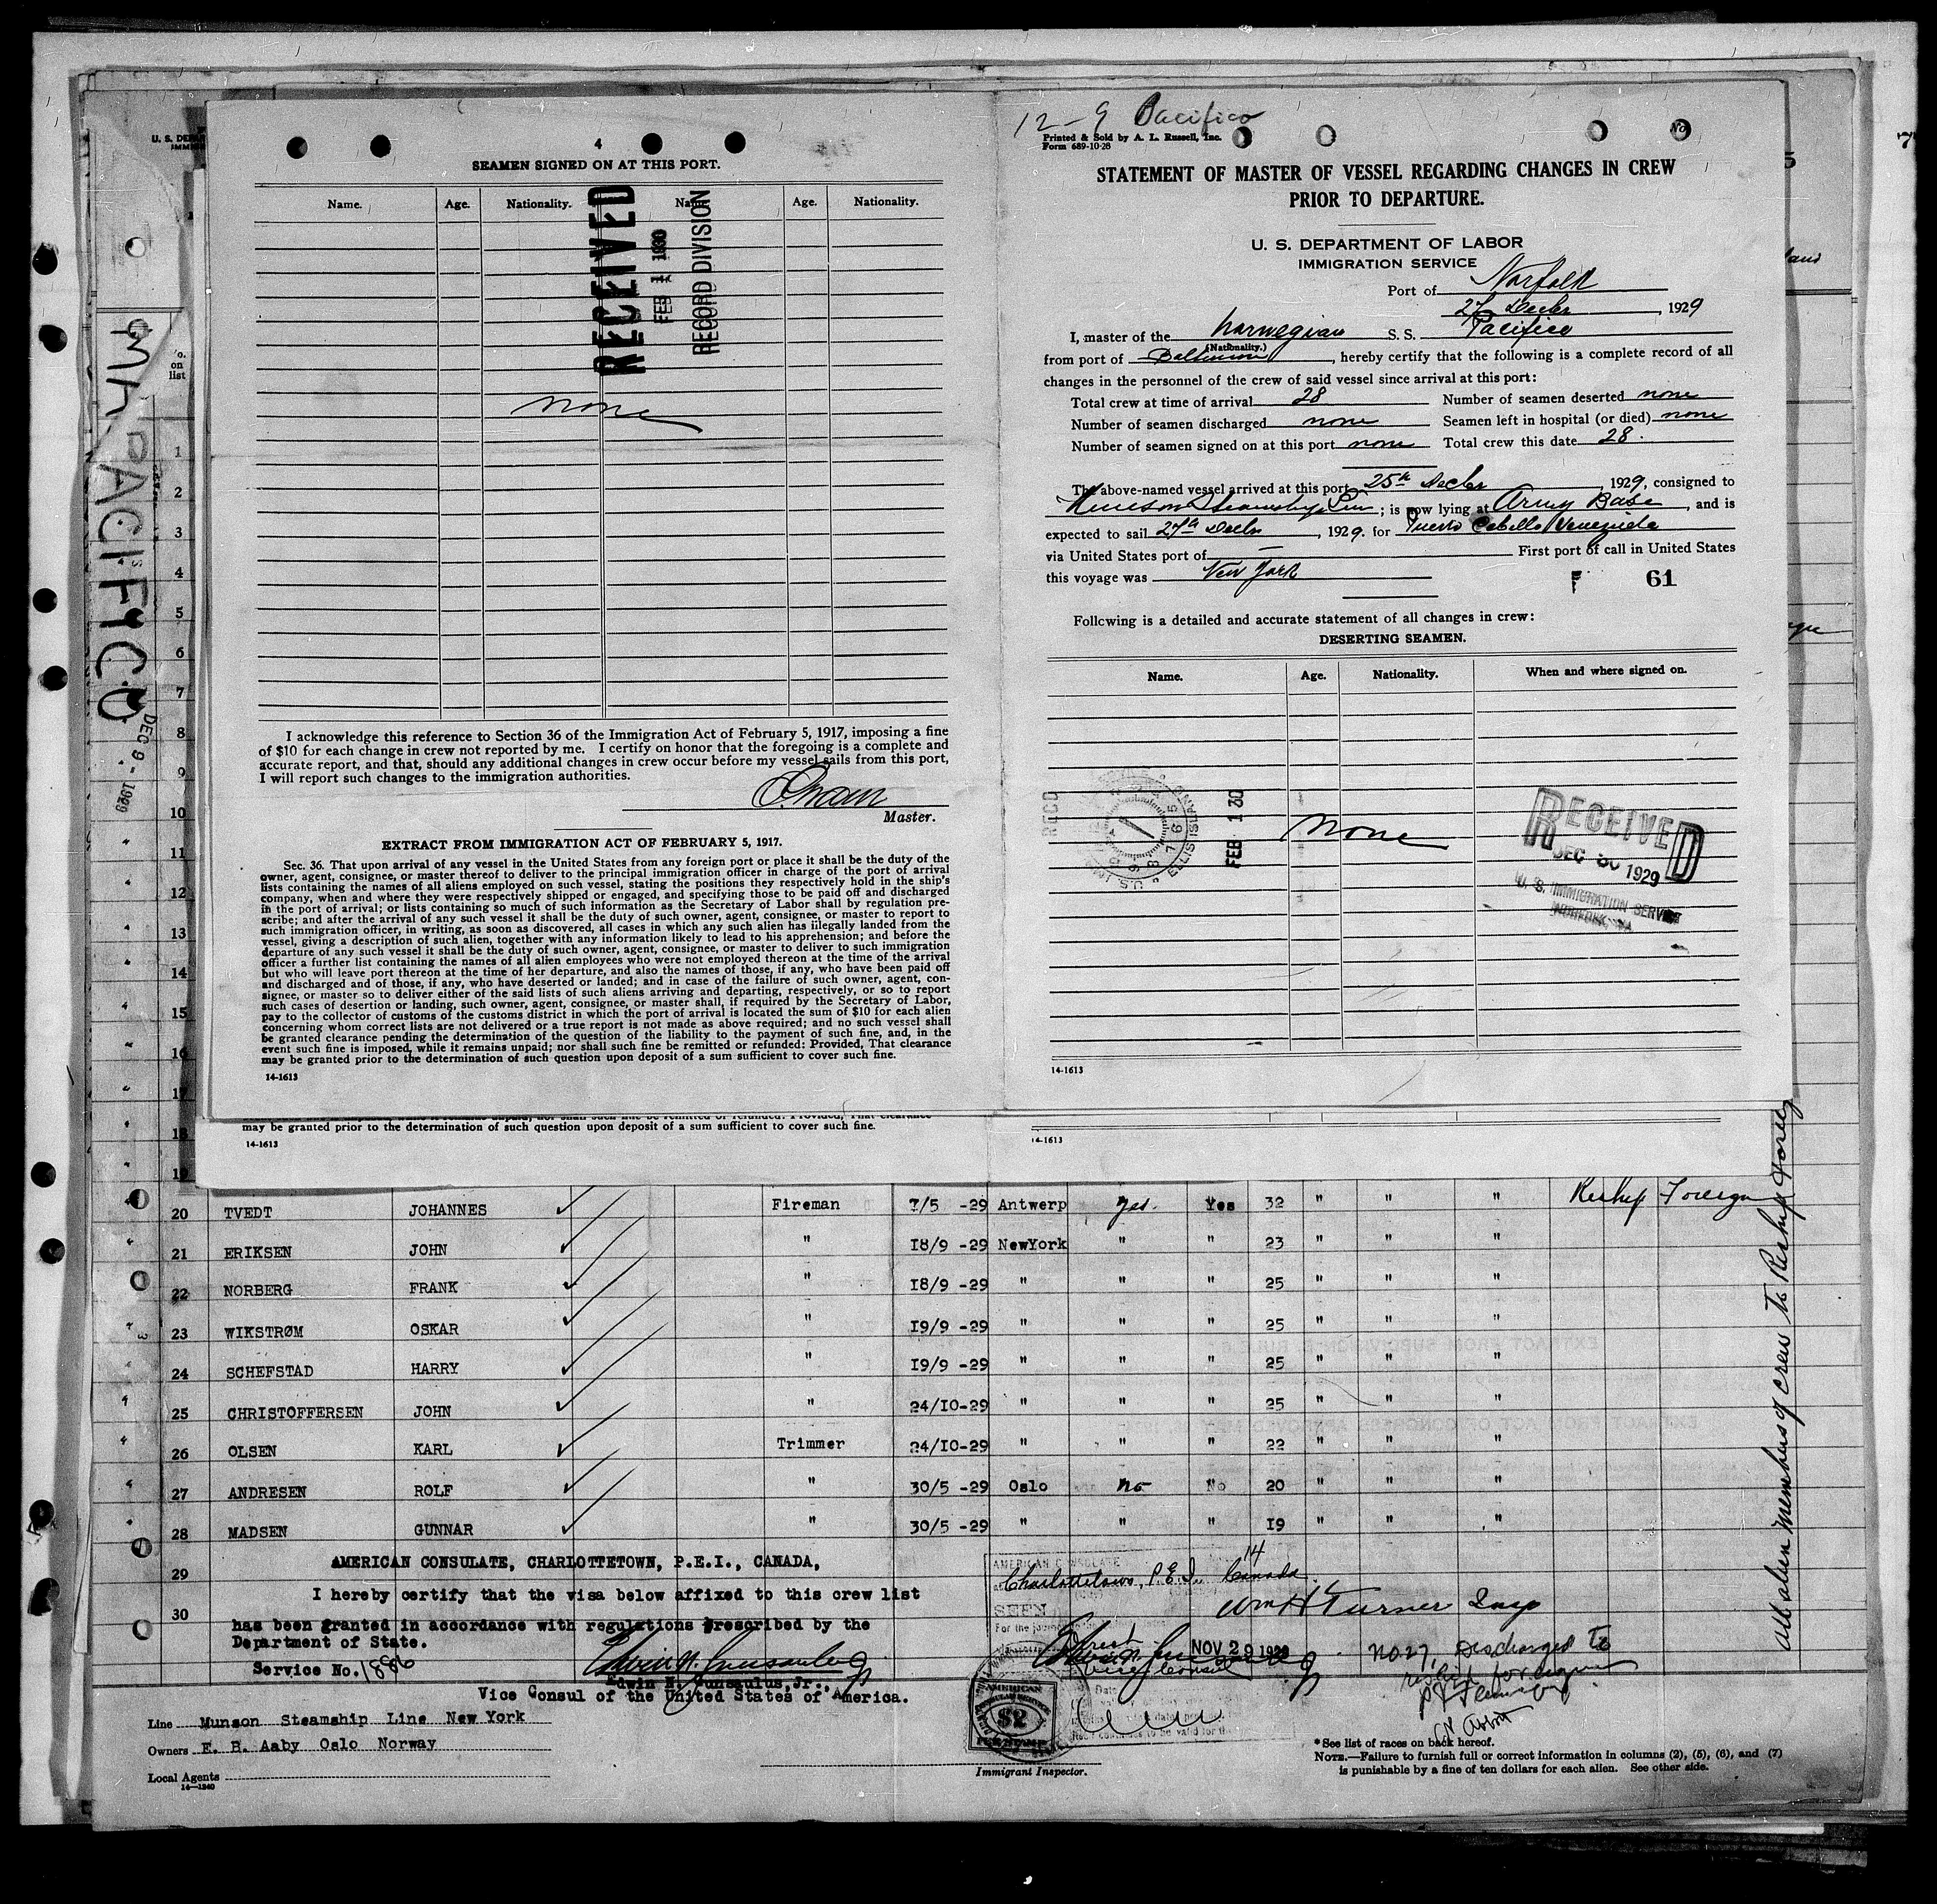 U. S. DEPA
4
SEAMEN SIGNED ON AT THIS PORT.
Name. Age. Nationality. Name. Age. Nationality.
RECEIVED
FEB 1 1930
RECORD DIVISION
none
I acknowledge this reference to Section 36 of the Immigration Act of February 5, 1917, imposing a fine
of $10 for each change in crew not reported by me. I certify on honor that the foregoing is a complete and
accurate report, and that, should any additional changes in crew occur before my vessel sails from this port,
I will report such changes to the immigration authorities.
Master.
EXTRACT FROM IMMIGRATION ACT OF FEBRUARY 5, 1917.
Sec. 36. That upon arrival of any vessel in the United States from any foreign port or place it shall be the duty of the
owner, agent, consignee, or master thereof to deliver to the principal immigration officer in charge of the port of arrival
lists containing the names of all aliens employed on such vessel, stating the positions they respectively hold in the ship's
company, when and where they were respectively shipped or engaged, and specifying those to be paid off and discharged
in the port of arrival; or lists containing so much of such information as the Secretary of Labor shall by regulation pre-
scribe; and after the arrival of any such vessel it shall be the duty of such owner, agent, consignee, or master to report to
such immigration officer, in writing, as soon as discovered, all cases in which any such alien has illegally landed from the
vessel, giving a description of such alien, together with any information likely to lead to his apprehension; and before the
departure of any such vessel it shall be the duty of such owner, agent, consignee, or master to deliver to such immigration
officer a further list containing the names of all alien employees who were not employed thereon at the time of the arrival
but who will leave port thereon at the time of her departure, and also the names of those, if any, who have been paid off
and discharged and of those, if any, who have deserted or landed; and in case of the failure of such owner, agent, con-
signee, or master so to deliver either of the said lists of such aliens arriving and departing, respectively, or so to report
such cases of desertion or landing, such owner, agent, consignee, or master shall, if required by the Secretary of Labor,
pay to the collector of customs of the customs district in which the port of arrival is located the sum of $10 for each alien
concerning whom correct lists are not delivered or a true report is not made as above required; and no such vessel shall
be granted clearance pending the determination of the question of the liability to the payment of such fine, and, in the
event such fine is imposed, while it remains unpaid; nor shall such fine be remitted or refunded: Provided, That clearance
may be granted prior to the determination of such question upon deposit of a sum sufficient to cover such fine.
14-1613
12-9 Pacifico
Printed & Sold by A. L. Russell, Inc.
Form 689-10-28
No
STATEMENT OF MASTER OF VESSEL REGARDING CHANGES IN CREW
PRIOR TO DEPARTURE.
U. S. DEPARTMENT OF LABOR
IMMIGRATION SERVICE
Port of Norfolk
27 Decbr, 1929
I, master of the Norwegian S. S. Pacifico
(Nationality.)
from port of Baltimore, hereby certify that the following is a complete record of all
changes in the personnel of the crew of said vessel since arrival at this port:
Total crew at time of arrival 28 Number of seamen deserted none
Number of seamen discharged none Seamen left in hospital (or died) none
Number of seamen signed on at this port none Total crew this date 28.
The above-named vessel arrived at this port 25th Decbr, 1929, consigned to
Munson Steamship Line; is now lying at Army Base, and is
expected to sail 27th Decbr, 1929. for Puerto Cabello Venezuela
via United States port of — First port of call in United States
this voyage was New York
61
Following is a detailed and accurate statement of all changes in crew:
DESERTING SEAMEN.
Name. Age. Nationality. When and where signed on.
FEB 1 30
none
RECEIVED
DEC 30 1929
U. S. IMMIGRATION SERVICE
NORFOLK, VA
14-1613
may be granted prior to the determination of such question upon deposit of a sum sufficient to cover such fine.
14-1613
14-1613
PACIFICO
DEC 9 - 1929
No. on list
1
2
3
4
5
6
7
8
9
10
11
12
13
14
15
16
17
18
19
20 TVEDT JOHANNES Fireman 7/5 -29 Antwerp yes. Yes 32 " " " Reship Foreign
21 ERIKSEN JOHN " 18/9 -29 NewYork " " 23 " " "
22 NORBERG FRANK " 18/9 -29 " " " 25 " " "
23 WIKSTRØM OSKAR " 19/9 -29 " " " 25 " " "
24 SCHEFSTAD HARRY " 19/9 -29 " " " 25 " " "
25 CHRISTOFFERSEN JOHN " 24/10-29 " " " 25 " " "
26 OLSEN KARL Trimmer 24/10-29 " " " 22 " " "
27 ANDRESEN ROLF " 30/5 -29 Oslo no No 20 " " "
28 MADSEN GUNNAR " 30/5 -29 " " " 19 " " "
29
30
All alien members of crew to Reship Foreign
AMERICAN CONSULATE, CHARLOTTETOWN, P.E.I., CANADA,
I hereby certify that the visa below affixed to this crew list
has been granted in accordance with regulations prescribed by the
Department of State.
Service No. 1886
Edwin N. Gunsaulus, Jr.,
Vice Consul of the United States of America.
AMERICAN CONSULATE
14
Charlottetown, P.E.I. Canada.
SEEN
For the journey
Wm H Turner Insp
NOV 29 1929
Vice Consul
AMERICAN
$2
FEE STAMP
No 27, Discharged to
reship foreign
Line Munson Steamship Line New York
Owners E. B. Aaby Oslo Norway
Local Agents
14-1240
Immigrant Inspector.
* See list of races on back hereof.
NOTE.—Failure to furnish full or correct information in columns (2), (5), (6), and (7)
is punishable by a fine of ten dollars for each alien. See other side.